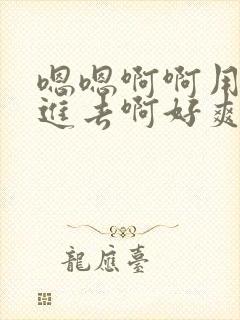 嗯嗯啊啊用
进去啊好爽
龍應臺